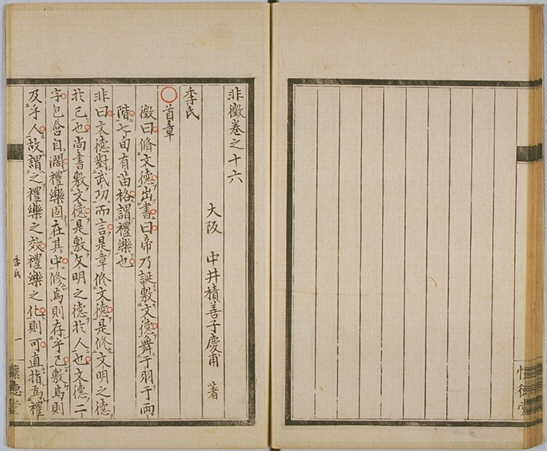 非徵卷之十六
大阪 中井積善子慶甫 著
季氏
○首章
徵曰脩文德出書曰帝乃誕敷文德舞干羽于兩
階七旬有苗格謂禮樂也
非曰文德對武功而言是章脩文德是脩文明之德
於己也尚書敷文德是敷文明之德於人也文德二
字包含自闊禮樂固在其中脩焉則存乎己敷焉則
及乎人故謂之禮樂之效禮樂之化則可直指為禮
季氏
一
懷德堂